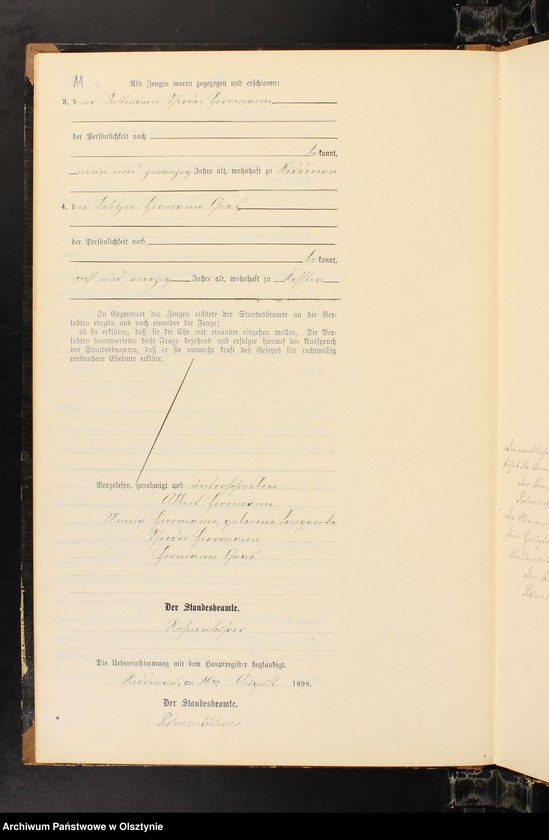 11
Als Zeugen waren zugezogen und erschienen:
3. der Theodor Herrmann
der Persönlichkeit nach
bekannt,
neun und zwanzig Jahre alt, wohnhaft zu Reddenau
4. der Hermann
der Persönlichkeit nach
bekannt,
acht und vierzig Jahre alt, wohnhaft zu
In Gegenwart der Zeugen richtete der Standesbeamte an die Ver-
lobten einzeln und nach einander die Frage:
ob sie erklären, daß sie die Ehe mit einander eingehen wollen. Die Ver-
lobten beantworteten diese Frage bejahend und erfolgte hierauf der Ausspruch
des Standesbeamten, daß er sie nunmehr kraft des Gesetzes für rechtmäßig
verbundene Eheleute erkläre.
Vorgelesen, genehmigt und unterschrieben:
Albert Herrmann
Herrmann, geborene
Theodor Herrmann
Hermann
Der Standesbeamte.
Die Uebereinstimmung mit dem Hauptregister beglaubigt.
Reddenau, am 26ten August 1898.
Der Standesbeamte.
Archiwum Państwowe w Olsztynie